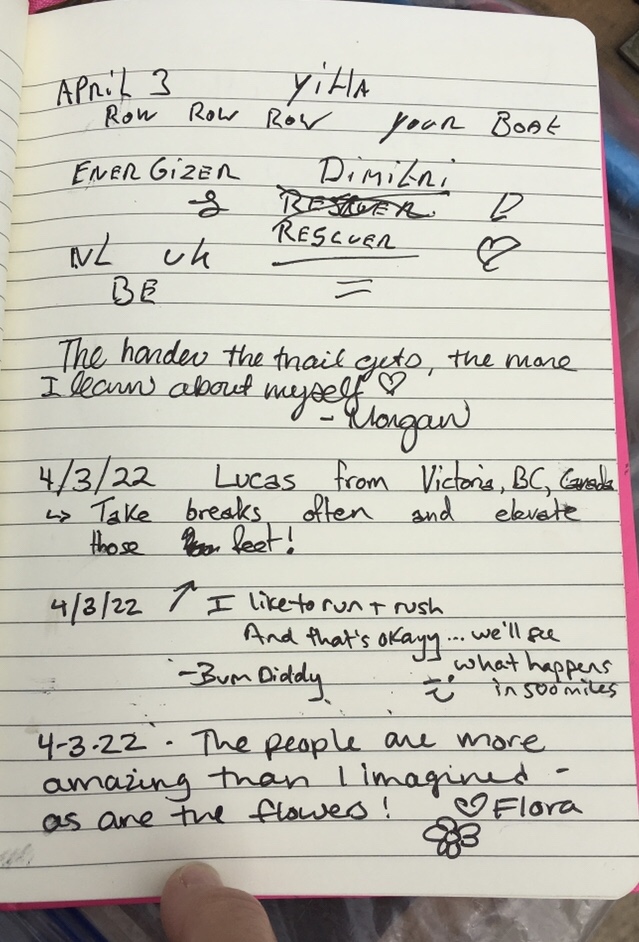 APRIL 3 YitlA
ROW ROW ROW your BOAt
ENERGIZER DiMitri
RESCUER
NL UK
BE
The harder the trail gets, the more
I learn about myself ♡
- Morgan
4/3/22 Lucas from Victoria, BC, Canada
↳ Take breaks often and elevate
those feet!
4/3/22 ↗ I like to run + rush
And that's okayy... we'll see
what happens
- Bum Diddy
in 500 miles
4-3-22 - The people are more
amazing than I imagined -
as are the flowers! ♡ Flora